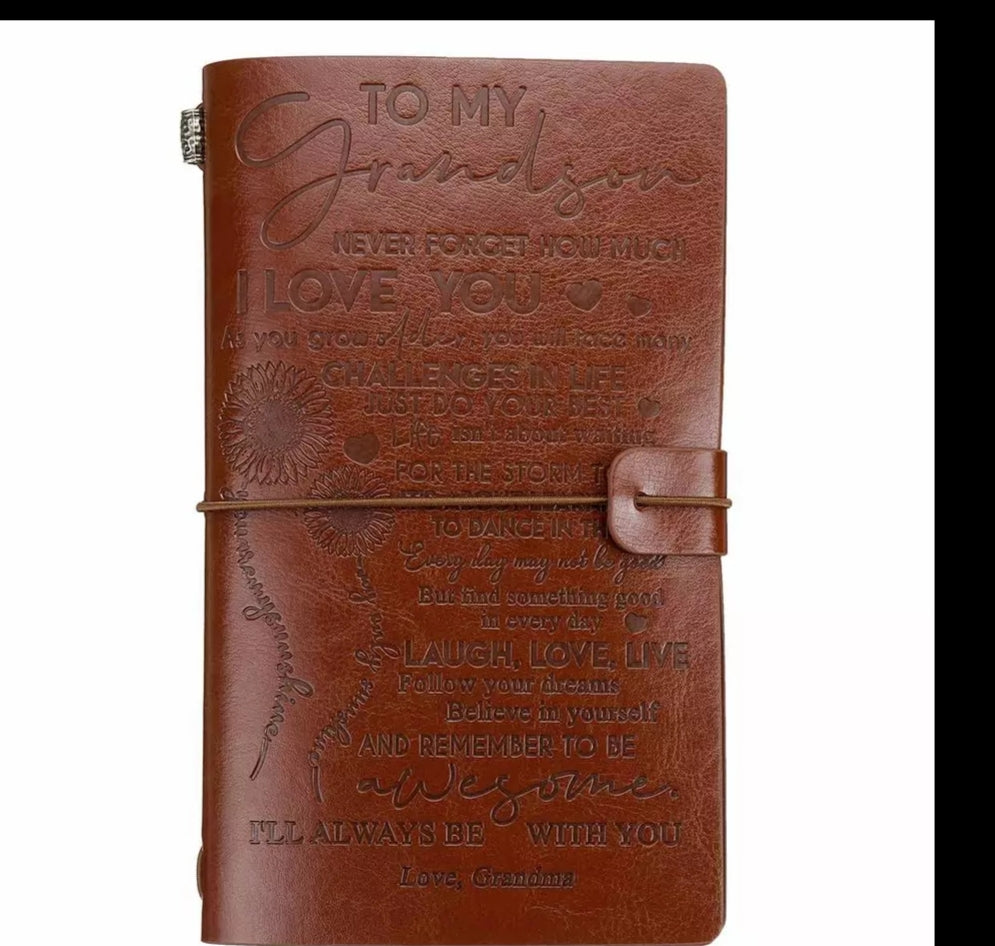 TO MY
Grandson
NEVER FORGET HOW MUCH
I LOVE YOU
As you grow older, you will face many
CHALLENGES IN LIFE
JUST DO YOUR BEST
Life isn't about waiting
FOR THE STORM
TO DANCE IN
Every day may not be good
But find something good
in every day
LAUGH, LOVE, LIVE
Follow your dreams
Believe in yourself
AND REMEMBER TO BE
awesome.
I'LL ALWAYS BE WITH YOU
Love, Grandma
you are my sunshine
my only sunshine